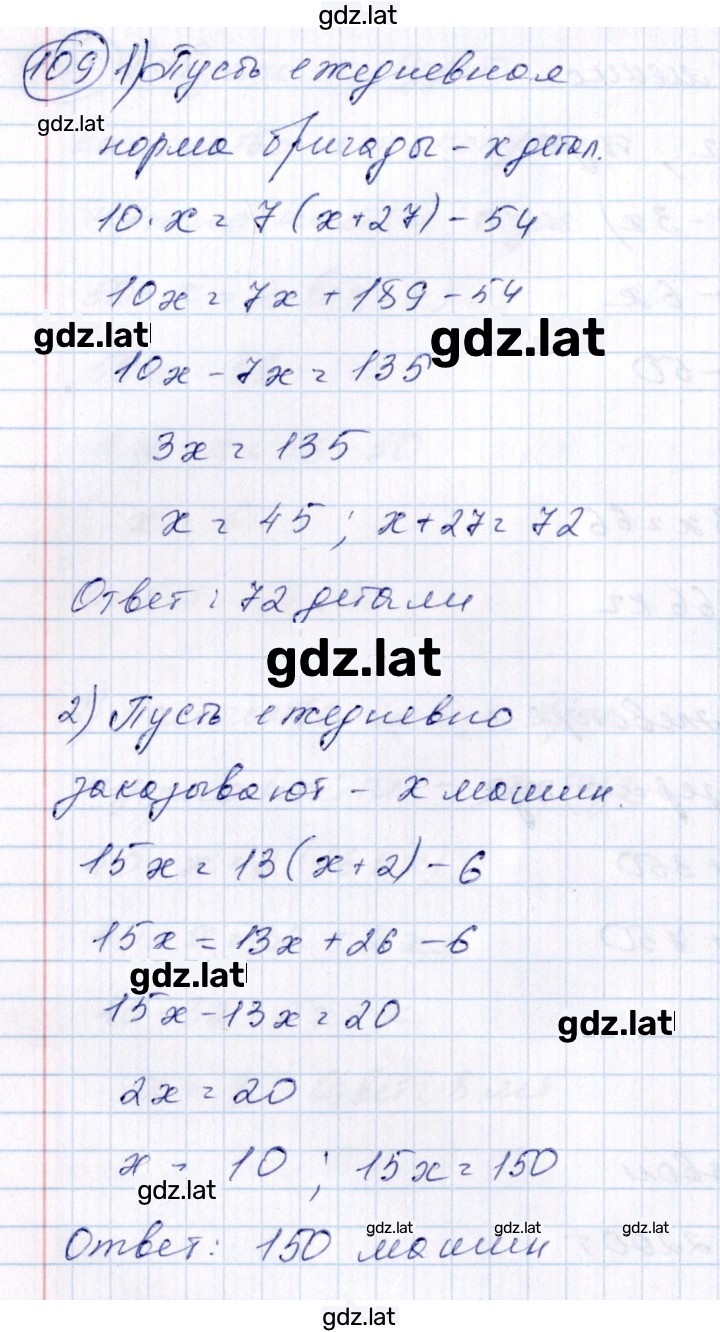 gdz.lat
109 1) Пусть ежедневная
gdz.lat
норма бригады - x детал.
10·x = 7(x+27) - 54
10x = 7x + 189 - 54
gdz.lat gdz.lat
10x - 7x = 135
3x = 135
x = 45; x+27 = 72
Ответ: 72 детали
gdz.lat
2) Пусть ежедневно
заказывают - x машин.
15x = 13(x+2) - 6
15x = 13x + 26 - 6
gdz.lat
15x - 13x = 20
gdz.lat
2x = 20
x = 10; 15x = 150
gdz.lat
gdz.lat gdz.lat gdz.lat
Ответ: 150 машин
gdz.lat